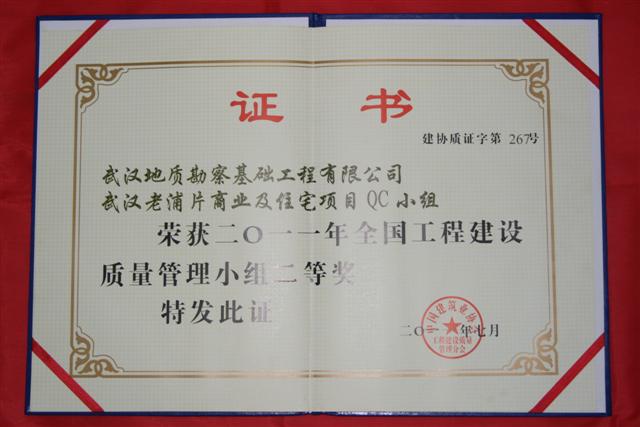 证 书
建协质证字第 267号
武汉地质勘察基础工程有限公司
武汉老浦片商业及住宅项目QC小组
荣获二〇一一年全国工程建设
质量管理小组二等奖
特发此证
二〇一 年七月
中国建筑业协
工程建设质量
管理分会